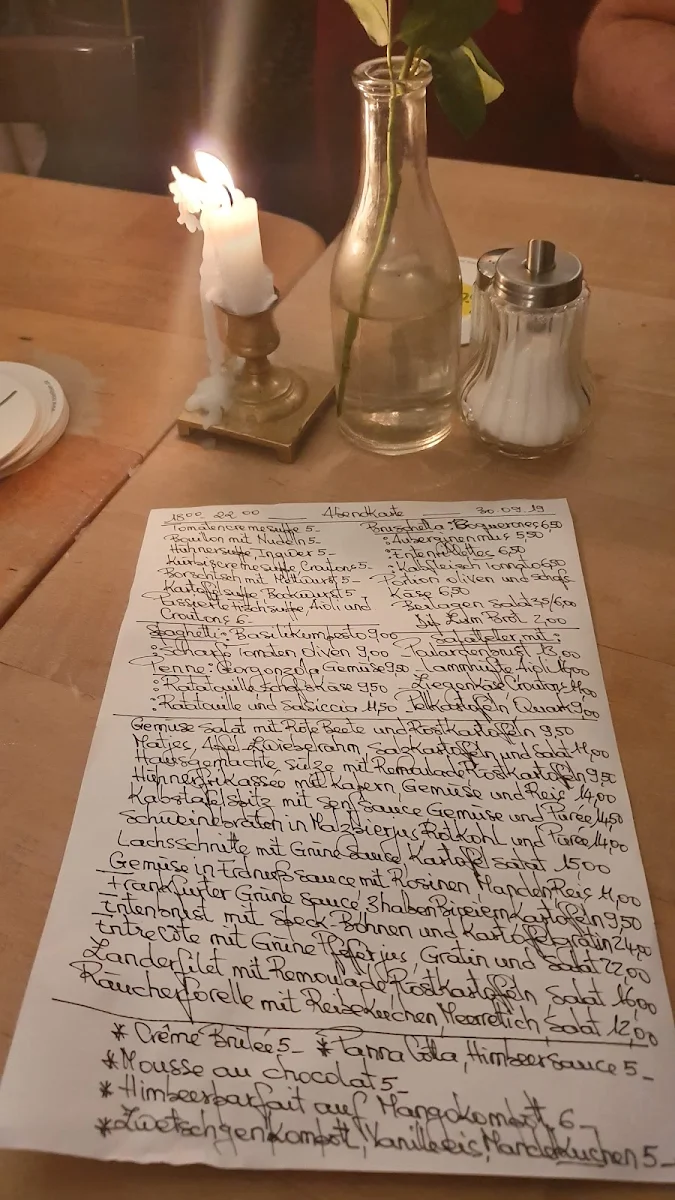 18⁰⁰ 22 00 Abendkarte 30 09 19
Tomatencremesuppe 5-
Bouillon mit Nudeln 5-
Hühnersuppe, Ingwer 5-
Kürbiscremesuppe Croutons 5-
Borschtsch mit Mettwurst 5-
Kartoffelsuppe Bockwurst 5-
Passierte Fischsuppe, Aioli und
Croutons 6-
Bruschetta: Boquerones 6,50
: Auberginenmus 5,50
: Entenrillettes 6,50
: Kalbfleisch Tonnato 6,50
Portion Oliven und Schafs
Käse 6,50
Beilagen Salat 3,5/6,00
Zum Brot 2,00
Spaghetti: Basilikumpesto 9,00
: Scharfe Tomaten Oliven 9,00
Penne: Gorgonzola Gemüse 9,50
: Ratatouille Schafskäse 9,50
: Ratatouille und Salsiccia 11,50
Salatteller mit:
Poulardenbrust 13,00
Lammhüfte Aioli
Ziegenkäse, Croutons
Pellkartoffeln, Quark 9,00
Gemüse Salat mit Rote Beete und Rostkartoffeln 9,50
Matjes, Apfel-Zwiebelrahm, Salzkartoffeln und Salat 11,00
Hausgemachte Sülze mit Remoulade Rostkartoffeln 9,50
Hühnerfrikassée mit Kapern, Gemüse und Reis 14,00
Kalbstafelspitz mit Senf Sauce Gemüse und Pürée 14,50
Schweinebraten in Malzbierjus Rotkohl und Pürée 14,00
Lachsschnitte mit Grüne Sauce, Kartoffel Salat 15,00
Gemüse in Erdnuß sauce mit Rosinen, Mandeln, Reis 11,00
Frankfurter Grüne Sauce, 3 halben Bioeiern Kartoffeln 9,50
Entenbrust mit Speck-Bohnen und Kartoffelgratin 24,00
Entrecôte mit Grüne Pfefferjus, Gratin und Salat 22,00
Zanderfilet mit Remoulade Rostkartoffeln Salat 16,00
Räucherforelle mit Reibekuchen, Meerrettich, Salat 12,00
* Crème Brulée 5- * Panna Cotta, Himbeersauce 5-
* Mousse au chocolat 5-
* Himbeerparfait auf Mangokompott 6-
* Zwetschgenkompott, Vanilleeis, Mandelkuchen 5-